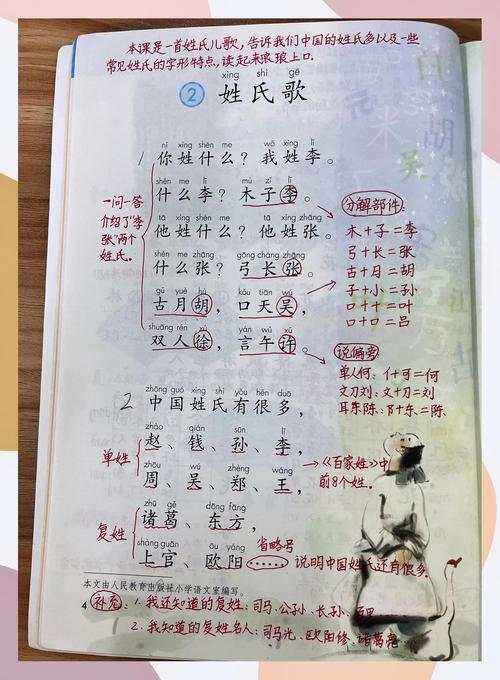 本课是一首姓氏儿歌，告诉我们中国的姓氏多以及一些
常见姓氏的字形特点，读起来琅琅上口。
xìng shì gē
2 姓氏歌
nǐ xìng shén me wǒ xìng lǐ
1 你姓什么？我姓李。
shén me lǐ mù zǐ lǐ
什么李？木子李。
tā xìng shén me tā xìng zhāng
他姓什么？他姓张。
shén me zhāng gōng cháng zhāng
什么张？弓长张。
gǔ yuè hú kǒu tiān wú
古月胡，口天吴，
shuāng rén xú yán wǔ xǔ
双人徐，言午许。
一问一答
介绍了“李
张”两个
姓氏。
分解部件：
木+子=李
弓+长=张
古+月=胡
子+小=孙
口+十=叶
口+口=吕
说偏旁
单人何：亻+可=何
文刀刘：文+刂=刘
耳东陈：阝+东=陈
zhōng guó xìng shì yǒu hěn duō
2 中国姓氏有很多，
zhào qián sūn lǐ
赵、钱、孙、李，
zhōu wú zhèng wáng
周、吴、郑、王，
单姓
→《百家姓》中
前8个姓。
zhū gě dōng fāng
诸葛、东方，
shàng guān ōu yáng
上官、欧阳……
复姓
省略号
说明中国姓氏还有很多
本文由人民教育出版社小学语文室编写。
4 补充：1. 我还知道的复姓：司马、公孙、长孙、百里
2. 我知道的复姓名人：司马光、欧阳修、诸葛亮